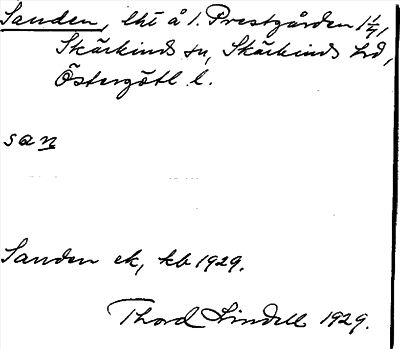 Sanden, lht å 1. Prestgården 1/4,
Skärkinds sn, Skärkinds hd,
Östergötl l.
san
Sanden ek, kb 1929.
Thord Lindell 1929.